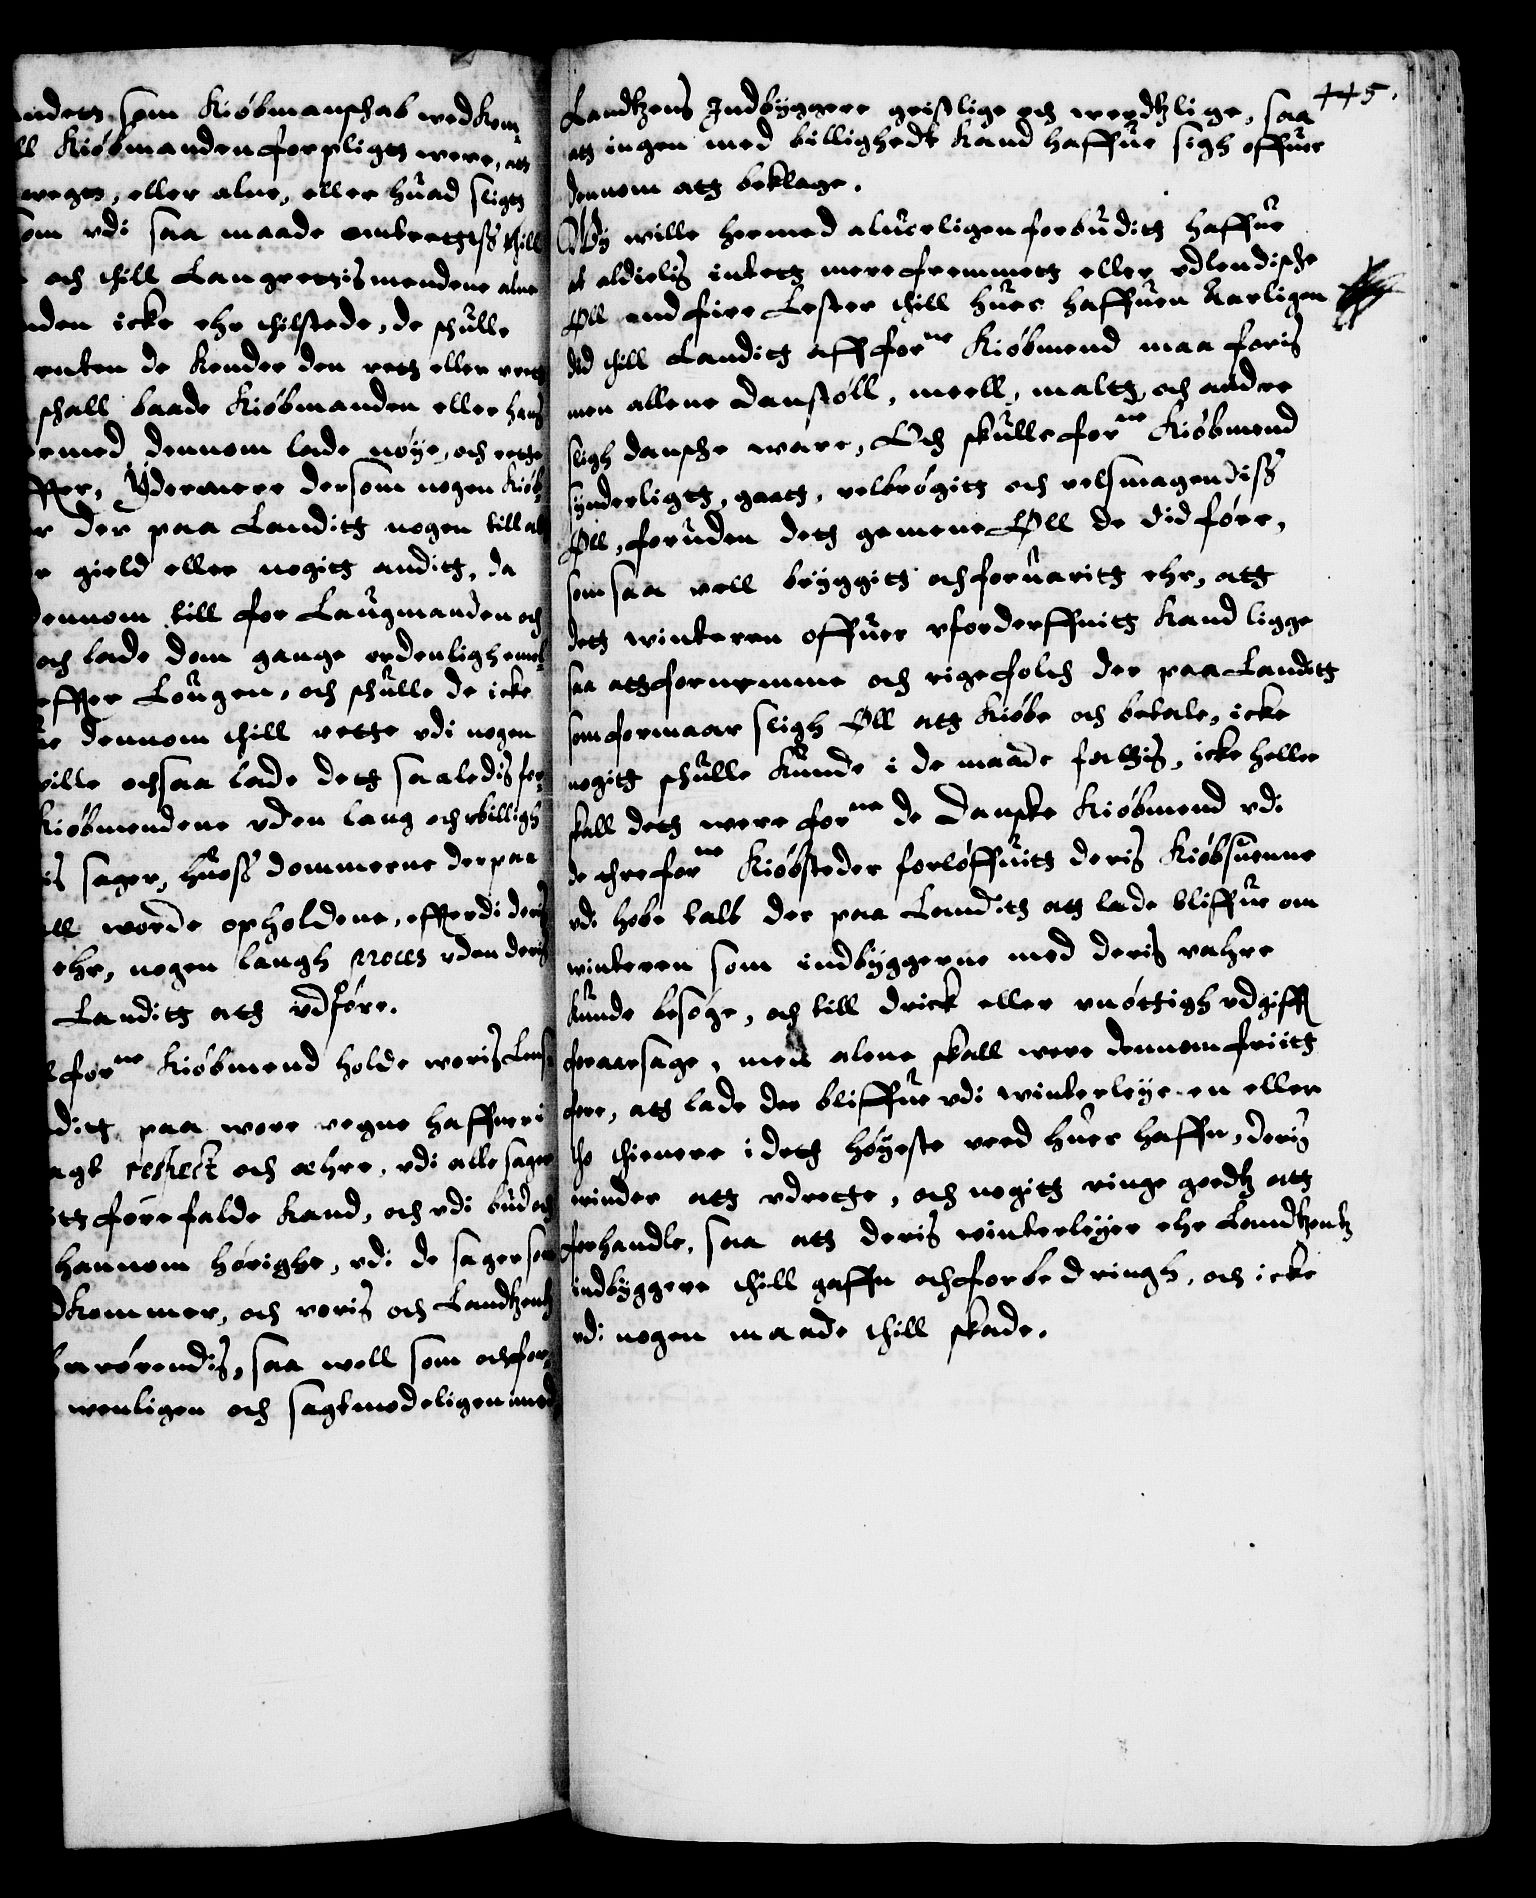 andets som Kiöbmanschab wedkom¬
ll Kiöbmanden forpligts were, ats
wegts, eller alne, eller huad sligts
om vdi saa maade ombrettiss thill
och thill Laugrettismendene alne
nden icke ehr thilstede, de schulle
enten de kender den rets eller vrets
schall baade Kiöbmanden eller hans
rmed dennom lade nöye, och rette
ffter, Ydermere dersom nogen Kiöb
r der paa Landits nogen till at
e gield eller nogits andits, da
dennom till for Laugmanden och
och lade dom gange ordenligh
effter Lougen, och schulle de icke
ne dennom thill rette vdi nogen
ville ochsaa lade dets saaledis for¬
Kiöbmendene vden lang och vbilligh
is sager, huess dommerne der paa
all worde opholdene, efftterdi deris
ehr, nogen laugh Moess vden deris
Landits ats vdföre.
forne Kiöbmend holde woris Lens¬
dits paa wore vegne haffuer i
agt respect och æhre, vdi alle sager
ts forefalde kand, och vdi bud och
hannom hörighe, vdi de sager som
dkommer, och voris och Landtzens
anrörendis, saa well som och for¬
wenligen och sagtmodeligen med
445.
Landtzens Indbyggere geistlige och werdtzlige, saa
ats ingen med billighedt kand haffue sigh offuer
dennom ats beklage.
Wy wille hermed aluerligen forbudits haffue
at aldielis intets mere fremmets eller vdlendische
Öll end fire Lester thill huer haffuen aarligen
did thill Landits aff forne Kiöbmend maa föris
men allene Danstöll, meell, malts, och andre
sligh dansche ware, Och skulle forne Kiöbmend
synderligts, gaats, velbrögits och velsmagendiss
Öll, foruden dets gemene Öll de did före,
som saa vell bryggits och foruarits ehr, ats
dets winteren offuer vforderffuits kand ligge
saa ats fornemme och rige folch der paa Landits
som formaar sligh Öll ats kiöbe och betale, icke
nogits schulle kunde i de maade fattis, icke heller
skall dets were forne de Danske Kiöbmend vdi
de thre forne Kiöbsteder forlöffuits deris Kiöbsuenne
vdi hobe tall der paa Landits ats lade bliffue om
winteren som indbyggerne med deris vahre
kunde besöge, och till drick eller vnöttigh vdgifft
foraarsage, men alene skall were dennom friits
fore, ats lade der bliffue vdi winterleye en eller
tho thienere i dets höyeste ved huer haffn, deris
winder ats vdrette, och nogits ringe goedtz ats
forhandle, saa ats deris winterleyer ehr Landtzens
indbyggere thill gaffn och forbedringh, och icke
vdi nogen maade thill skade.